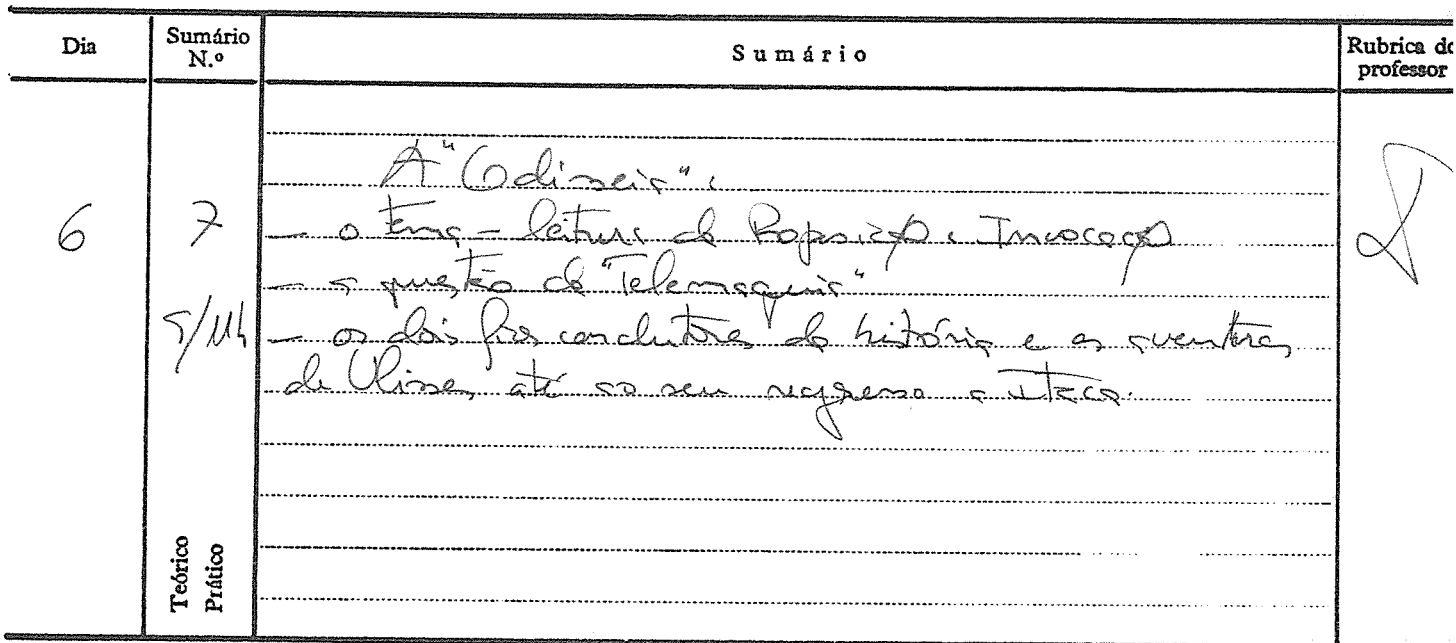 Dia
Sumário N.º
Sumário
Rubrica do professor
A "Odisseia":
6
7
— o tema — leitura da Proposição e Invocação
— a questão da "Telemaquia"
— os dois fios condutores da história e as aventuras
de Ulisses até ao seu regresso a Ítaca.
Teórico
Prático